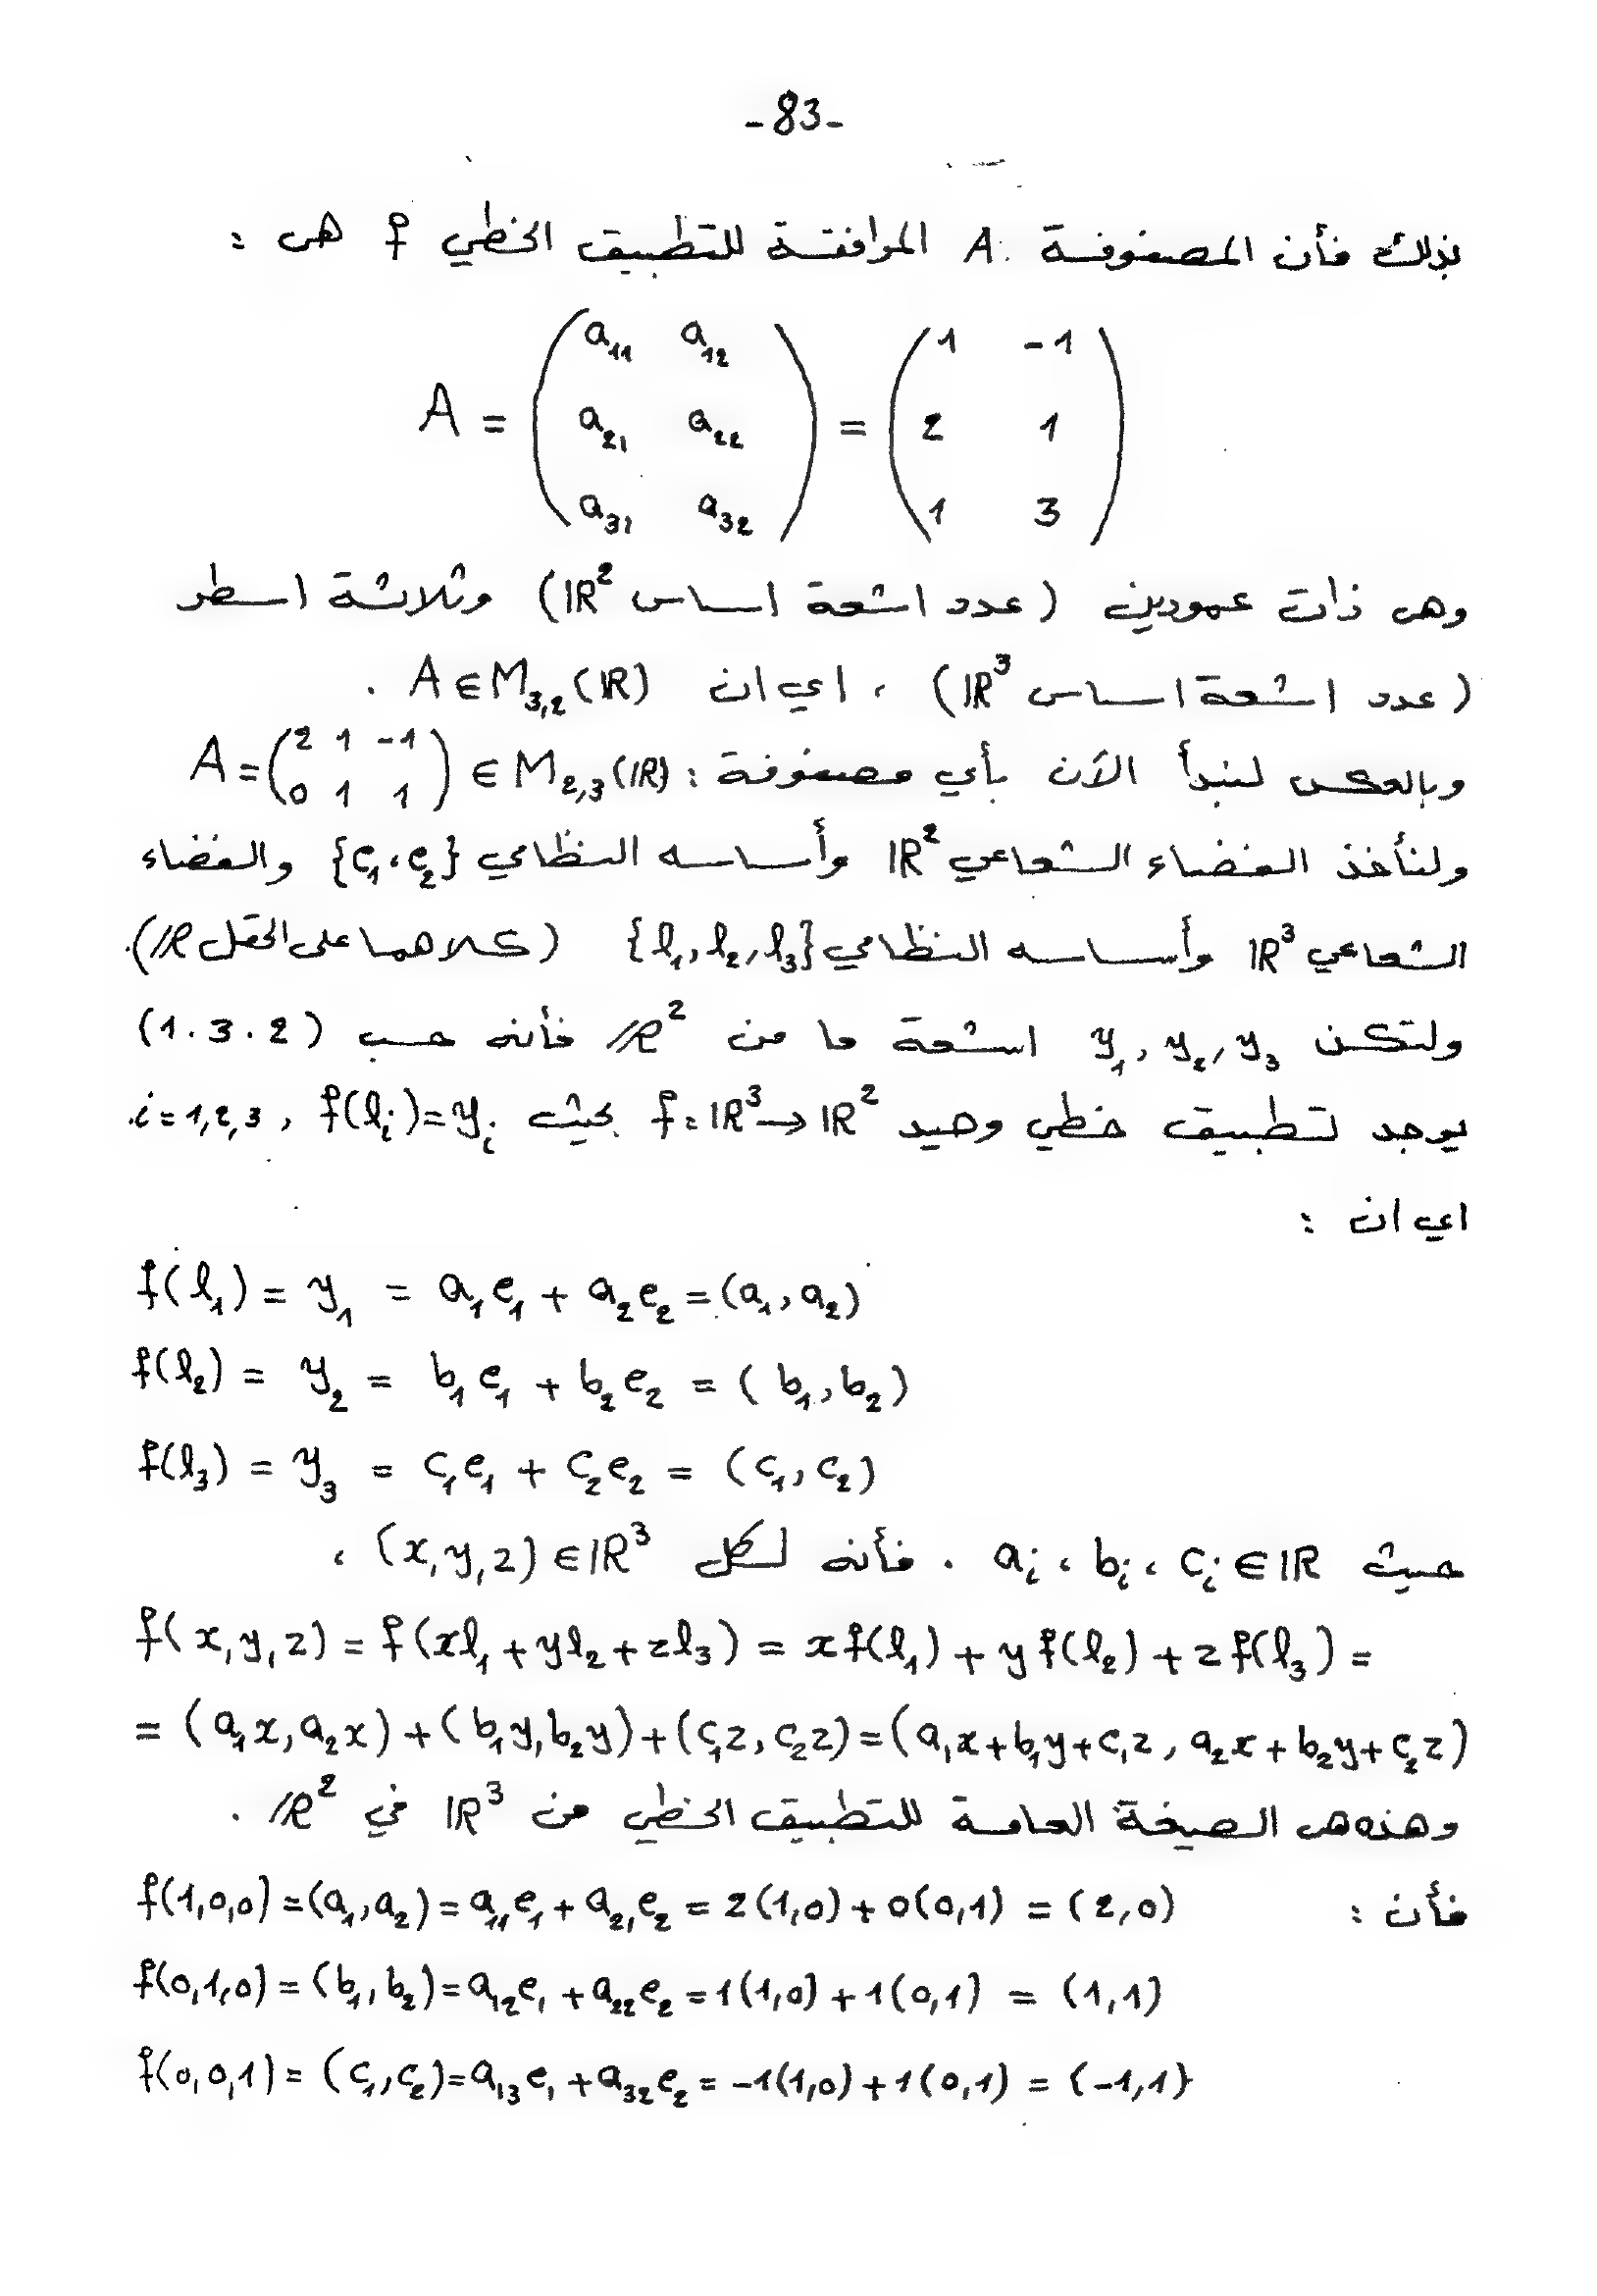 -83-
بذلك فأن المصفوفة A الموافقة للتطبيق الخطي f هى :
A = \begin{pmatrix} a_{11} & a_{12} \\ a_{21} & a_{22} \\ a_{31} & a_{32} \end{pmatrix} = \begin{pmatrix} 1 & -1 \\ 2 & 1 \\ 1 & 3 \end{pmatrix}
وهى ذات عمودين (عدد اشعة اساس IR²) وثلاثة اسطر
(عدد اشعة اساس IR³) ، اي ان A ∈ M₃,₂(IR) .
وبالعكس لنبدأ الآن بأي مصفوفة : A = \begin{pmatrix} 2 & 1 & -1 \\ 0 & 1 & 1 \end{pmatrix} ∈ M₂,₃(IR)
ولنأخذ الفضاء الشعاعي IR² وأساسه النظامي {e₁، e₂} والفضاء
الشعاعي IR³ وأساسه النظامي {l₁, l₂, l₃} (كلاهما على الحقل IR).
ولتكن y₁, y₂, y₃ اشعة ما من IR² فأنه حسب (1.3.2)
يوجد تطبيق خطي وحيد f: IR³ → IR² بحيث f(lᵢ) = yᵢ , i = 1,2,3.
اي ان :
f(l₁) = y₁ = a₁e₁ + a₂e₂ = (a₁, a₂)
f(l₂) = y₂ = b₁e₁ + b₂e₂ = (b₁, b₂)
f(l₃) = y₃ = c₁e₁ + c₂e₂ = (c₁, c₂)
حيث aᵢ ، bᵢ ، cᵢ ∈ IR . فأنه لكل (x,y,z) ∈ IR³ ،
f(x,y,z) = f(xl₁ + yl₂ + zl₃) = xf(l₁) + yf(l₂) + zf(l₃) =
= (a₁x, a₂x) + (b₁y, b₂y) + (c₁z, c₂z) = (a₁x + b₁y + c₁z, a₂x + b₂y + c₂z)
وهذه هى الصيغة العامة للتطبيق الخطي من IR³ في IR² .
فأن : f(1,0,0) = (a₁,a₂) = a₁₁e₁ + a₂₁e₂ = 2(1,0) + 0(0,1) = (2,0)
f(0,1,0) = (b₁,b₂) = a₁₂e₁ + a₂₂e₂ = 1(1,0) + 1(0,1) = (1,1)
f(0,0,1) = (c₁,c₂) = a₁₃e₁ + a₃₂e₂ = -1(1,0) + 1(0,1) = (-1,1)